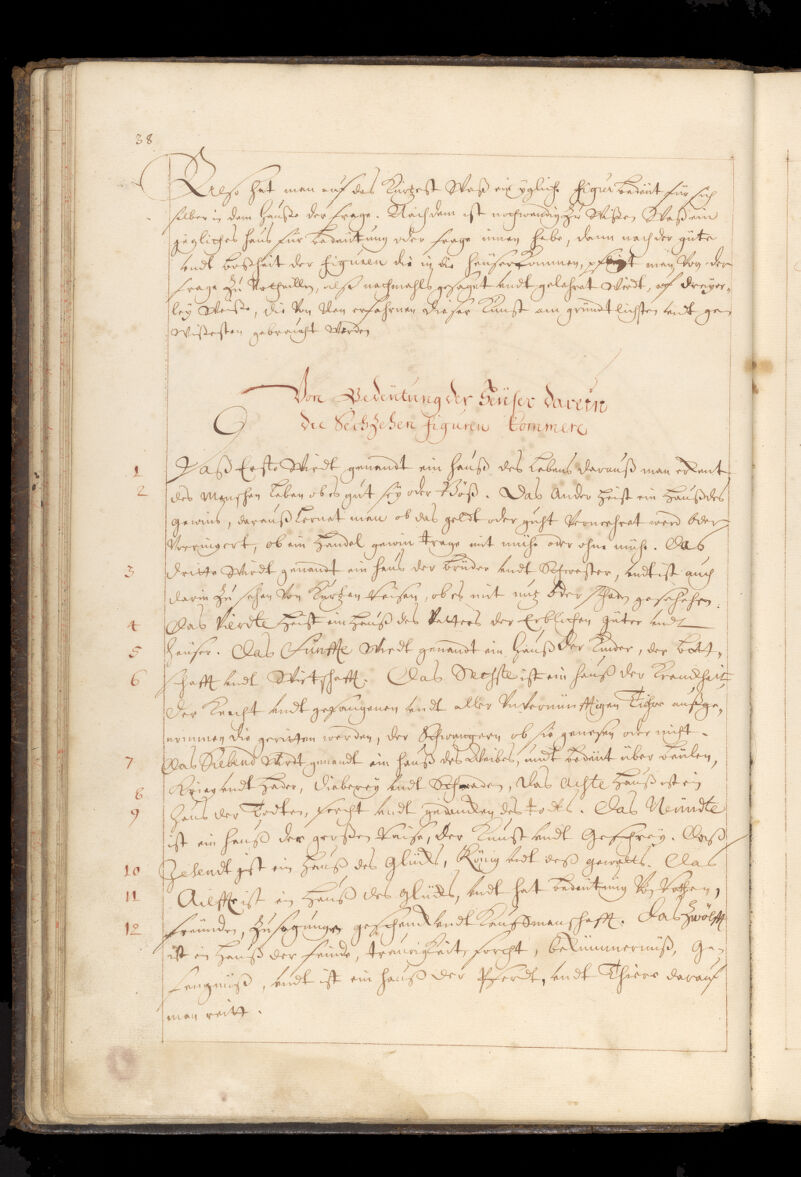 38
Also hat man auf das Kürtzest Waß ein ygliche figur bedeut für sich
selber in dem Hauße der frage. Nachdem ist nothwendig zu wißen Waß ein
jegliches Haus für bedeutung oder frage innen habe, dann nach der güte
vndt boßheit der figuren die in die Heüser kommen, man von der
frage zu vrtheillen, alß nachmahls gesagt vndt gelehret Wirdt, auf dreyer-
ley Weiße, die von den erfahrnen dießer Kunst am gründtlichsten vndt ge-
wißesten gebraucht Werden
Von Bedeutung der Heüser darein
die Sechzehen figuren kommen
1 Daß Erste Wirdt genandt ein Hauß des Lebens darauß man erkent
2 des Menschen Leben ob es gut sey oder Böß. Das Ander Heist ein Hauß des
gewins, darauß Lernet man ob das geldt oder gutt Vermehret werd oder
Verringert, ob ein Handel gewin trage mit mühe oder ohne mühe. Das
3 dritte Wirdt genandt ein Haus der brüder vndt Schwester, vndt ist auch
darin zu sehen von Kurtzen Reisen, ob es mit nutz oder schaden geschehen.
4 Das Vierdte Heist ein Hauß des Vatters der Erblichen güter vndt
5 Heüser. Das Fünffte Wirdt genandt ein Hauß der Kinder, der bott-
6 schafft vndt Wirtschafft. Das Sechste ist ein Hauß der Kranckheit
der Knecht vndt gefangenen vndt aller Vnvernünfftigen Thier außge-
nommen die geritten werden, der Schwangern ob sie genesen oder nicht.
7 Das Siebend Wirdt genandt ein Hauß des Weibes, vndt bedeut
8 Krieg vndt Hader, Dieberey vndt Schaden, Das Achte Hauß ist ein
9 Haus der Todten, forcht vndt gedancken des todts. Das Neündte
ist ein Hauß der großen Reise, der Kunst vndt Geschrey. Daß
10 Zehendt ist ein Hauß des Glücks, König vndt deß gewalts. Das
11 Ailffte ist ein Hauß des glücks, vndt hat bedeutung Von
12 freünden, zusagungen geschenck vndt Kauffmanschafft. Das Zwölffte
ist ein Hauß der feinde, traurigkeit, forcht, bekümmernüß, Ge-
fengnüß, vndt ist ein Hauß der Pferdt, vndt Thiere darauf
man reitt.